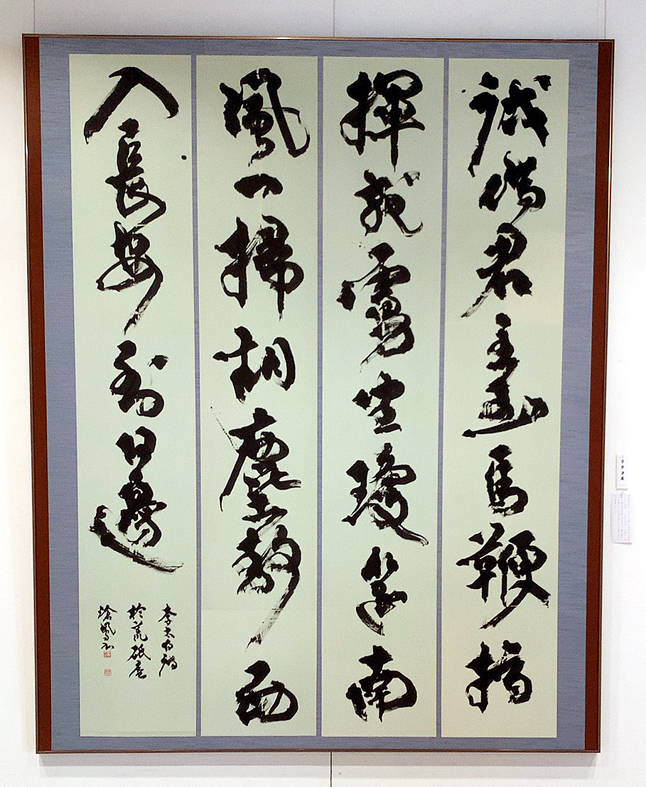 試借君王玉馬鞭指
揮戎虜坐瓊筵南
風一掃胡塵靜西
入長安到日邊
李太白詩
於荒砥庵